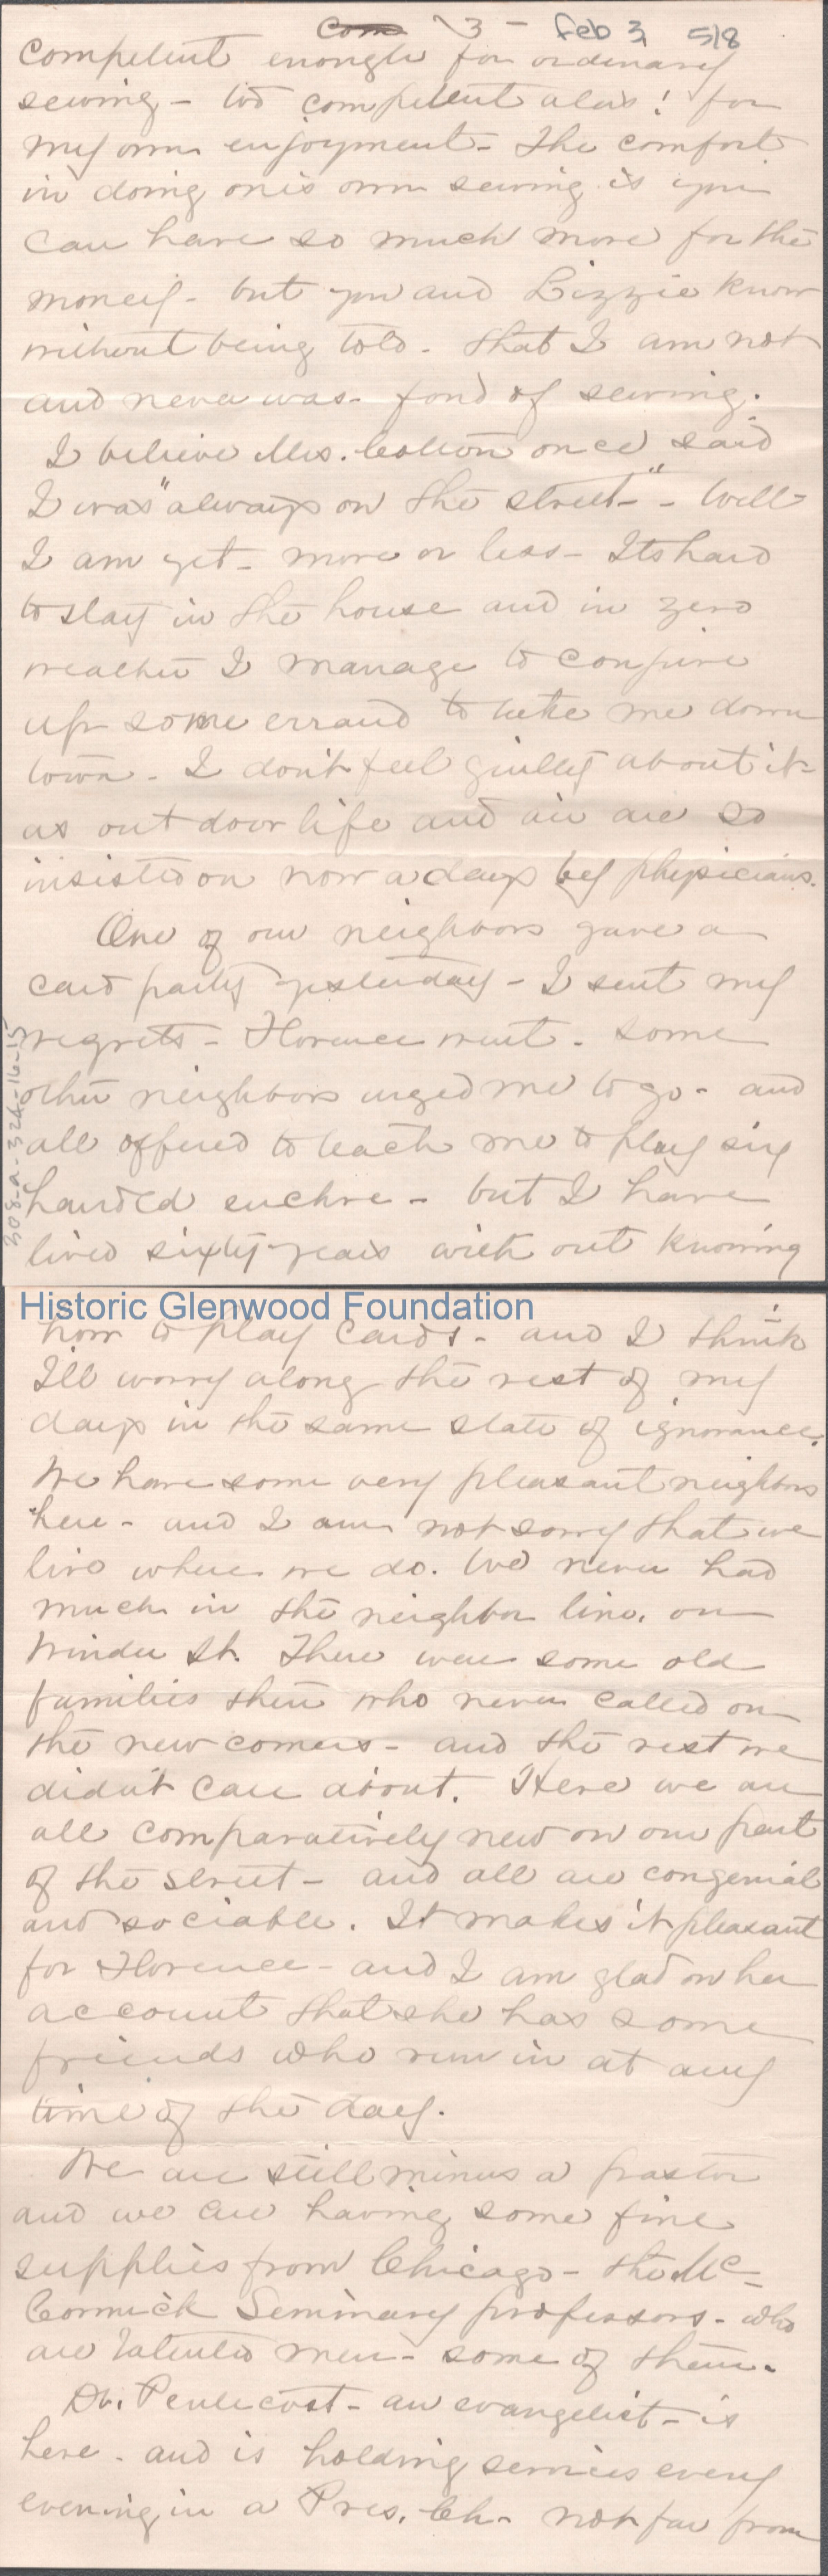 Com 3 - Feb 3, 5/8
competent enough for ordinary
sewing - too competent alas! for
my own enjoyment - The comfort
in doing one's own sewing is you
can have so much more for the
money - but you and Lizzie know
without being told - that I am not
and never was - fond of sewing.
I believe Mrs. Colton once said
I was "always on the street-" - Well
I am yet - more or less - Its hard
to stay in the house and in zero
weather I manage to conjure
up some errand to take me down
town - I don't feel guilty about it -
as out door life and air are so
insisted on now a days by physicians.
One of our neighbors gave a
card party yesterday - I sent my
regrets - Florence went - some
other neighbors urged me to go - and
all offered to teach me to play six
handed euchre - but I have
lived sixty years with out knowing
308-a-328-16-15
Historic Glenwood Foundation
how to play cards - and I think
I'll worry along the rest of my
days in the same state of ignorance.
We have some very pleasant neighbors
here - and I am not sorry that we
live where we do. We never had
much in the neighbor line, on
Winder St. There were some old
families there who never called on
the new comers - and the rest we
didn't care about. Here we are
all comparatively new on our part
of the street - and all are congenial
and sociable. It makes it pleasant
for Florence - and I am glad on her
account that she has some
friends who run in at any
time of the day.
We are still minus a pastor
and we are having some fine
supplies from Chicago - the Mc-
Cormick Seminary professors - who
are talented men - some of them.
Dr. Pentecost - an evangelist - is
here - and is holding services every
evening in a Pres. Ch - not far from